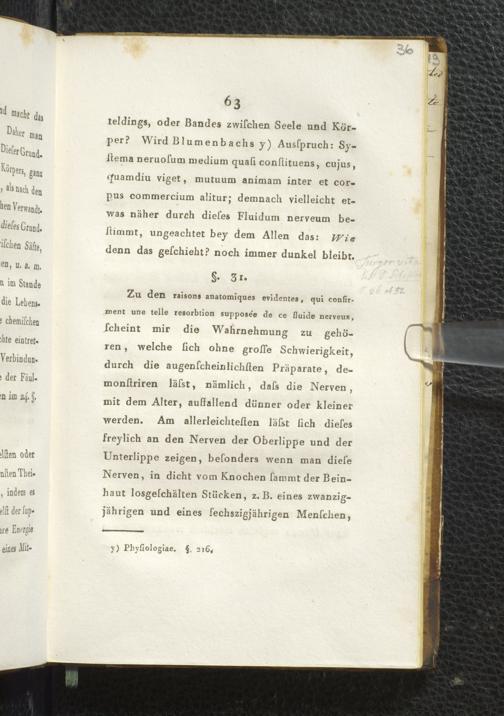 nd macht das
Daher man
Dieſer Grund-
Körpers, ganz
, als nach den
hen Verwandt-
dieſes Grund-
riſchen Säfte,
en, u. a. m.
n im Stande
die Lebens-
e chemiſchen
chte eintret-
Verbindun-
e der Fäul-
en im 24. §.
elſten oder
nſten Thei-
, indem es
elſt der ſup-
hre Energie
eines Mit-
36
63
teldings, oder Bandes zwiſchen Seele und Kör-
per? Wird Blumenbachs y) Ausſpruch: Sy-
ſtema neruoſum medium quaſi conſtituens, cujus,
quamdiu viget, mutuum animam inter et cor-
pus commercium alitur; demnach vielleicht et-
was näher durch dieſes Fluidum nerveum be-
ſtimmt, ungeachtet bey dem Allen das: Wie
denn das geſchieht? noch immer dunkel bleibt.
§. 31.
Zu den raisons anatomiques evidentes, qui confir-
ment une telle resorbtion supposée de ce fluide nerveux,
ſcheint mir die Wahrnehmung zu gehö-
ren, welche ſich ohne groſſe Schwierigkeit,
durch die augenſcheinlichſten Präparate, de-
monſtriren läſst, nämlich, daſs die Nerven,
mit dem Alter, auffallend dünner oder kleiner
werden. Am allerleichteſten läſst ſich dieſes
freylich an den Nerven der Oberlippe und der
Unterlippe zeigen, beſonders wenn man dieſe
Nerven, in dicht vom Knochen ſammt der Bein-
haut losgeſchälten Stücken, z. B. eines zwanzig-
jährigen und eines ſechszigjährigen Menſchen,
y) Phyſiologiae. §. 216.